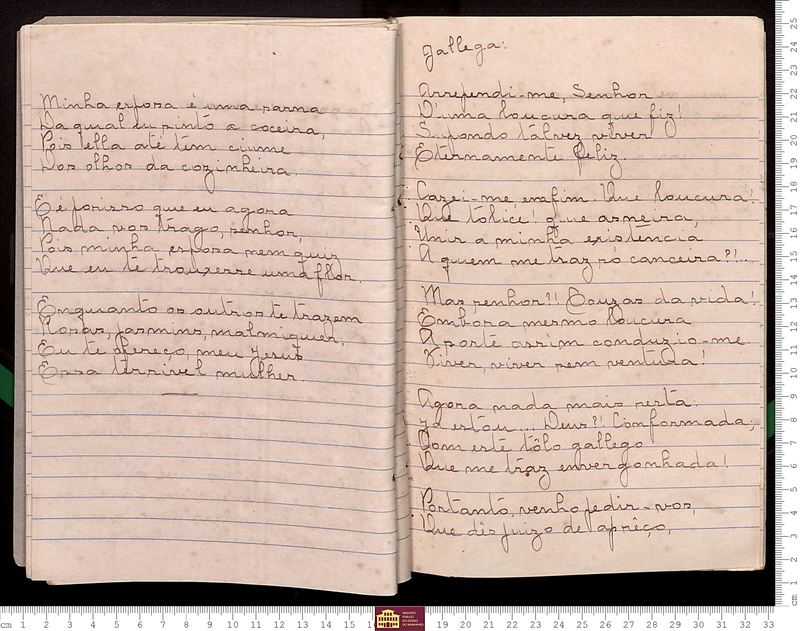 Minha esposa é uma sarna
Da qual eu sinto a coceira,
Pois ella até tem ciume
Dos olhos da cozinheira.
E é porisso que eu agora
Nada vos trago, senhor,
Pois minha esposa nem quiz
Que eu te trouxesse uma flor.
Enquanto os outros te trazem
Rosas, jasmins, malmiquer,
Eu te ofereço, meu Jesus
Essa terrivel mulher.
Gallega:
Arrependi-me, Senhor
D'uma loucura que fiz!
Supondo talvez viver
Eternamente feliz.
Cazei-me enfim. Que loucura!
Que tolice! que asneira,
Unir a minha existencia
A quem me traz só canceira?!..
Mas senhor?! Couzas da vida!
Embora mesmo loucura
A sorte assim conduzio-me
Viver, viver sem ventura!
Agora nada mais resta:
Já estou... Deus?! Conformada;
Com este tôlo gallego
Que me traz envergonhada!
Portanto, venho pedir-vos,
Que dês juizo de aprêço,